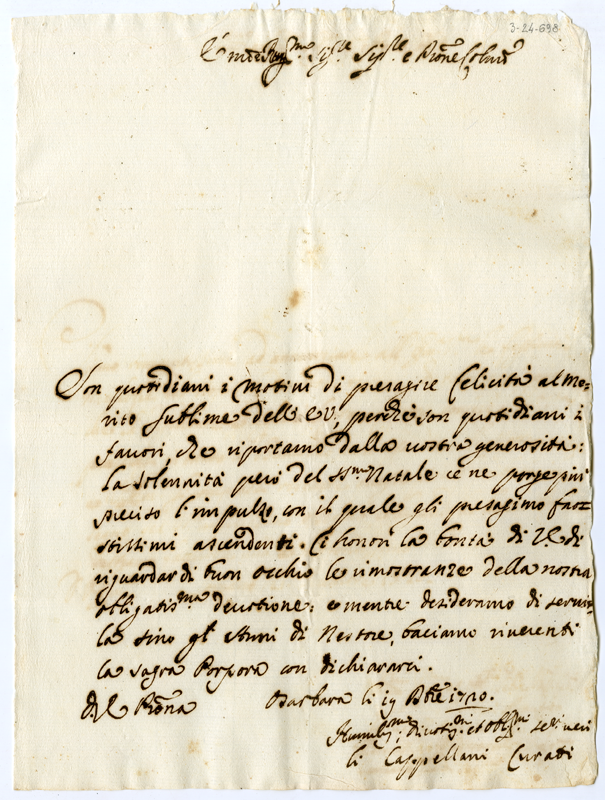 3-24-698
E.mo e Rev.mo Sig.re Sig.re e P.rone Col.mo
Son quotidiani i motivi di presagire felicità al me=
rito sublime dell' E V, perchè son quotidiani i
favori, che riportamo dalla vostra generosità:
la solennità però del SS.mo Natale ce ne porge più
preciso l'impulzo, con il quale gli presagimo faus=
stissimi ascendenti. Ci honori la bontà di V.E. di
riguardar di buon occhio le rimostranze della nostra
obligatis.ma devotione: e mentre desideramo di servir=
la sino gl' Anni di Nestore, baciamo riverenti
la sagra Porpora con dichiararci.
Di V.E. P.rona Barbara li 19 Xbre 1720.
Humil.mi, divotis.mi et obl.mi servi veri
li Cappellani Curati